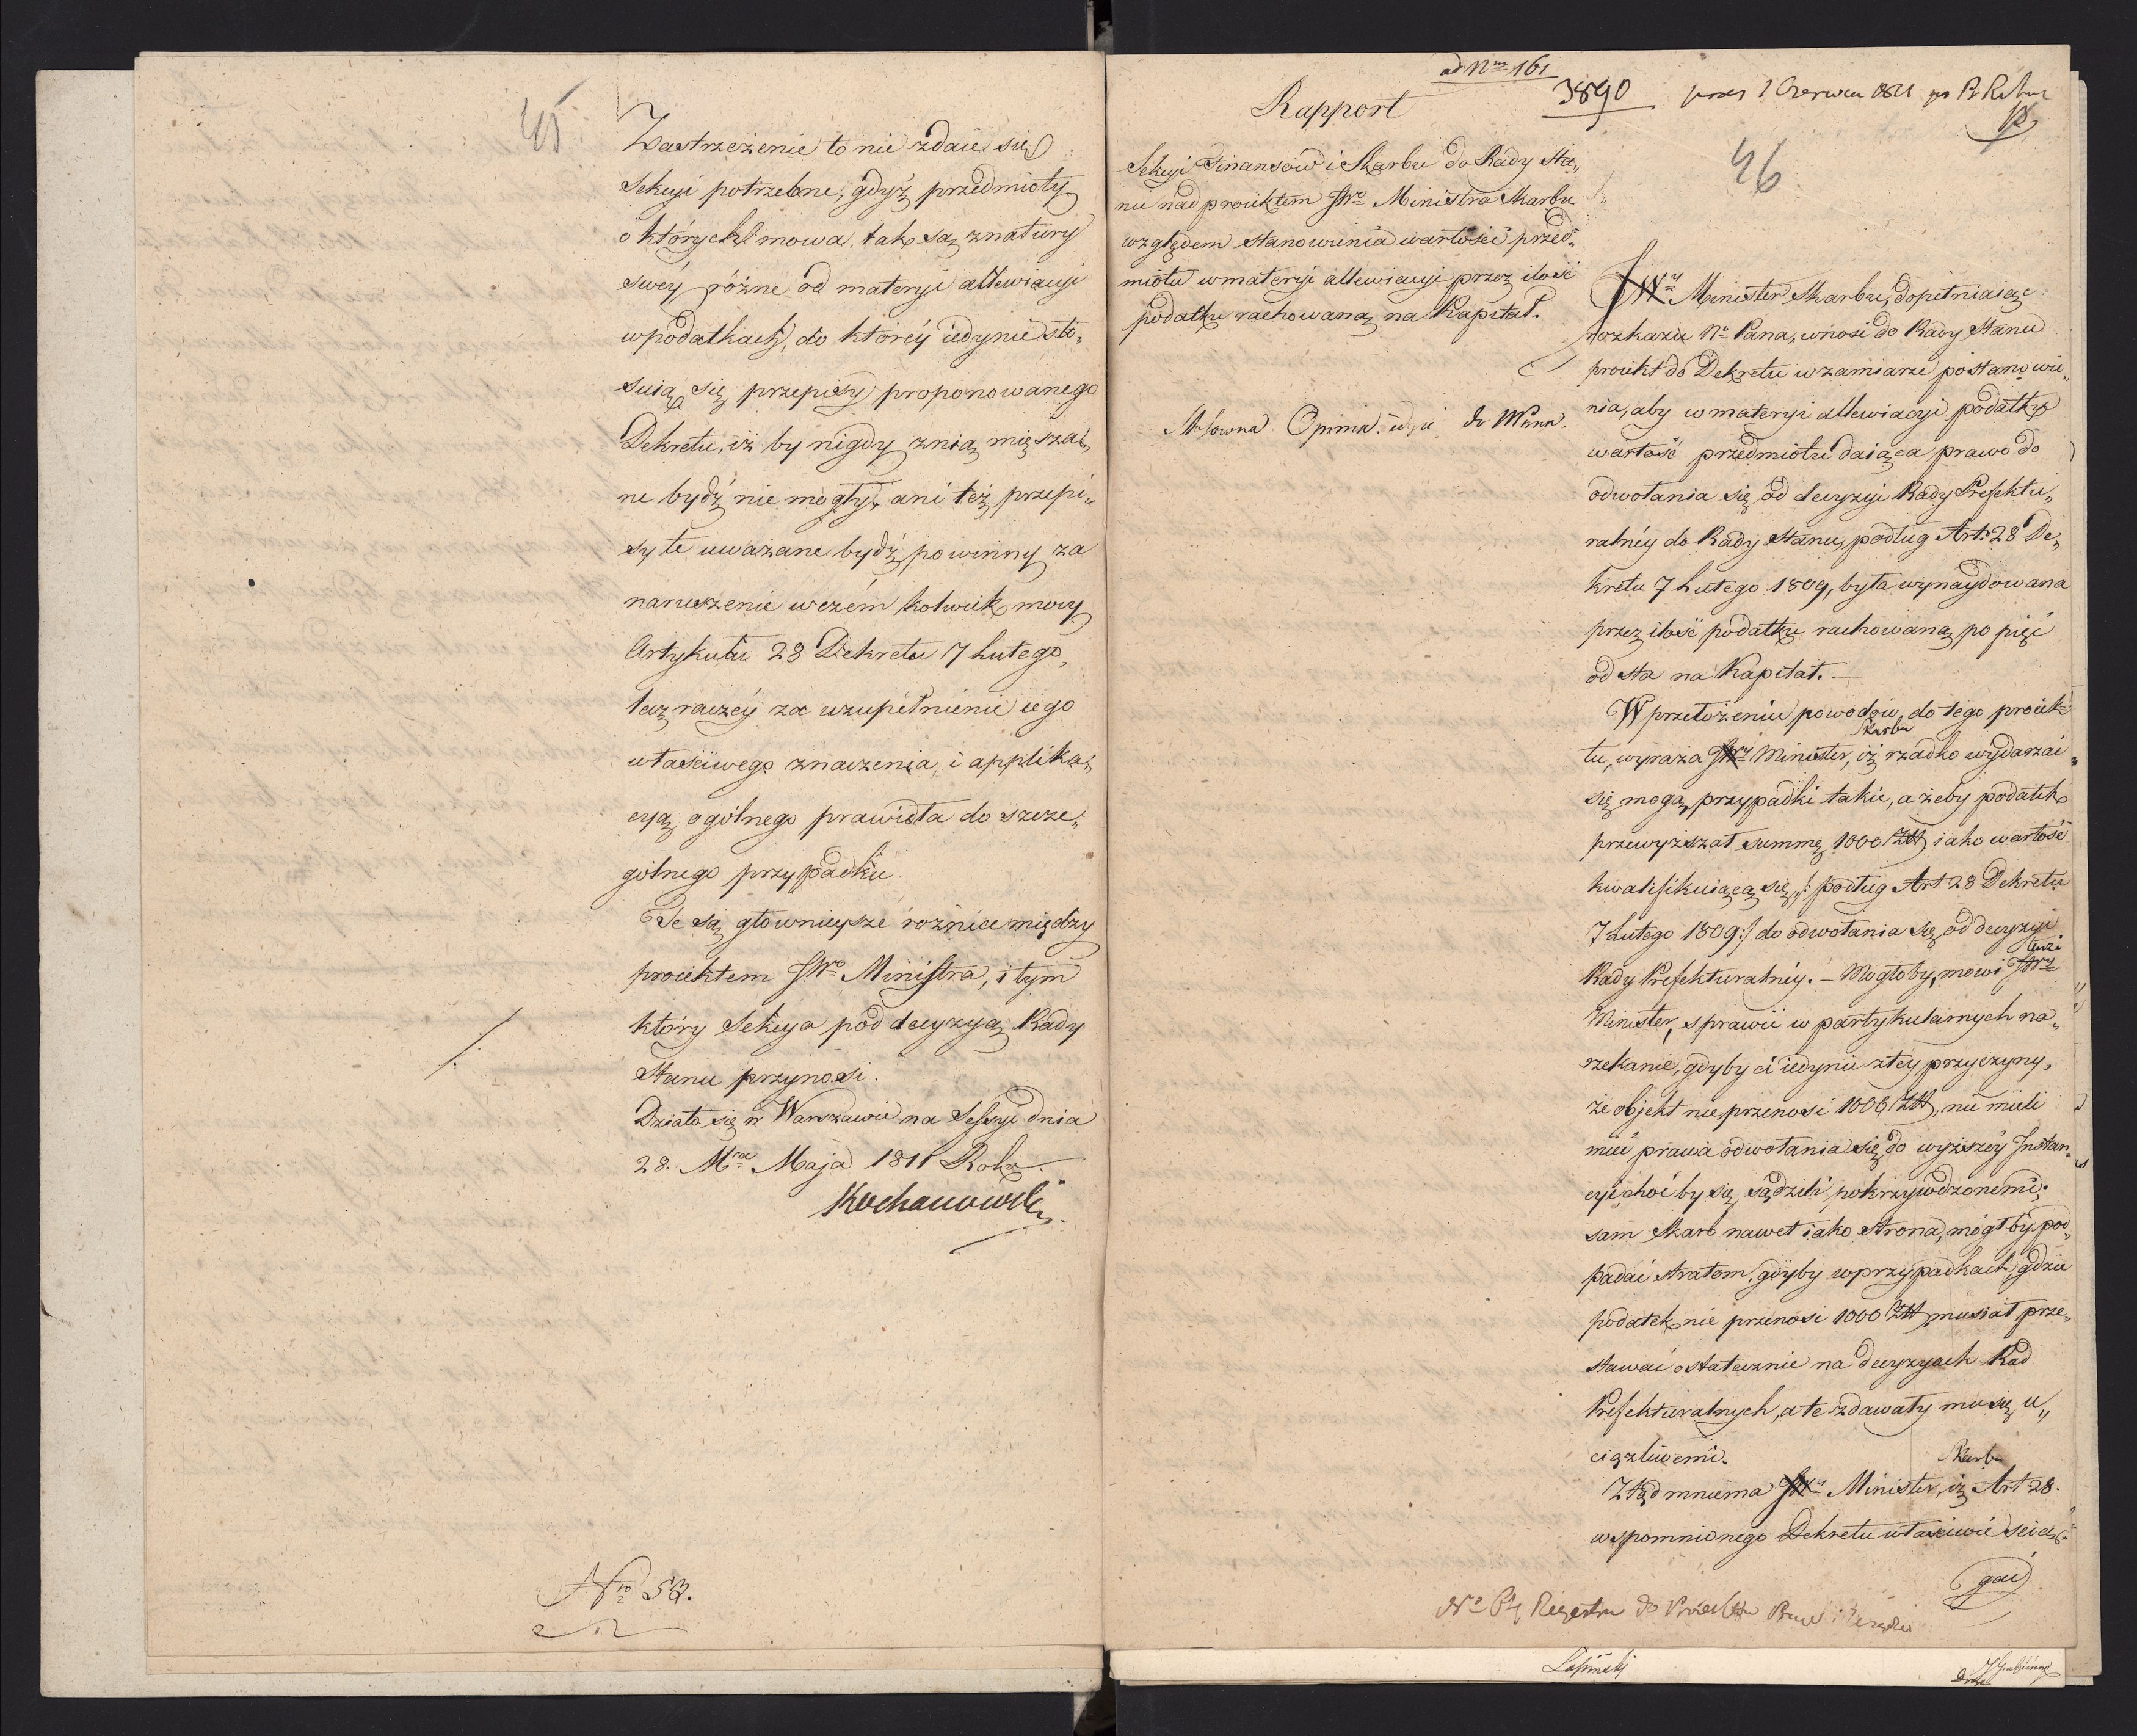 45
Zastrzeżenie to nie zdaie się
Sekcyi potrzebne, gdyż przedmioty
o których mowa, tak są z natury
swéy różne od materyi allewiacyi
w podatkach, do któréy iedynie sto„
suią się przepisy proponowanego
Dekretu, iż by nigdy z nią miesza„
ne bydź nie mogły, ani też przepi„
sy te uważane bydź powinny za
naruszenie w czém kolwiek mocy
Artykułu 28 Dekretu 7 Lutego,
lecz raczéy za uzupełnienie iego
właściwego znaczenia, i applika„
cyą ogólnego prawidła do szcze„
gólnego przypadku.
Te są głownieysze różnice między
proiektem JWo Ministra, i tym
który Sekcya pod decyzyą Rady
Stanu przynosi.
Działo się w Warszawie na Sessyi dnia
28. Mca Maja 1811 Roku.
Kochanowski
No 52.
ad Num 161
3890 Czerwca 1811
46
Rapport
Sekcyi Finansów i Skarbu do Rady Sta„
nu nad proiektem JWo Ministra Skarbu
względem stanowienia wartości przed„
miotu w materyi allewiacyi przez ilość
podatku rachowaną na Kapitał.
Opinia do
JWy Minister Skarbu, dopełniaiąc
rozkazu No Pana, wnosi do Rady Stanu
proiekt do Dekretu w zamiarze postanowie„
nia, aby w materyi allewiacyi podatku
wartość przedmiotu daiąca prawo do
odwołania się od decyzyi Rady Prefektu„
ralnéy do Rady Stanu, podług Art: 28 De„
kretu 7 Lutego 1809, była wynaydowana
przez ilość podatku rachowaną po pięć
od sta na Kapitał. —
W przełożeniu powodów do tego proiek„
Skarbu
tu, wyraża JWy Minister, iż rzadko wydarzać
się mogą przypadki takie, a żeby podatek
przewyższał summę 1000 Złł iako wartość
kwalifikuiącą się /: podług Art 28 Dekretu
7 Lutego 1809 :/ do odwołania się od decyzyi
Rady Prefekturalnéy. — Mogłoby, mówi JWy
Minister, sprawić w partykularnych na„
rzekanie, gdyby ci iedynie z téy przyczyny,
że objekt nie przenosi 1000 Złł, nie mieli
mieć prawa odwołania się do wyższéy Instan„
cyi choć by się sądzili pokrzywdzonemi;
sam Skarb nawet iako Strona, mógł by pod„
padać stratom, gdyby w przypadkach, gdzie
podatek nie przenosi 1000 Złł, musiał prze„
stawać ostatecznie na decyzyach Rad
Prefekturalnych, a te zdawały mu się u„
ciążliwemi.
Skarbu
Ztąd mniema JWy Minister, iż Art 28.
wspomnionego Dekretu właściwie ścią„
gać
Łapiński